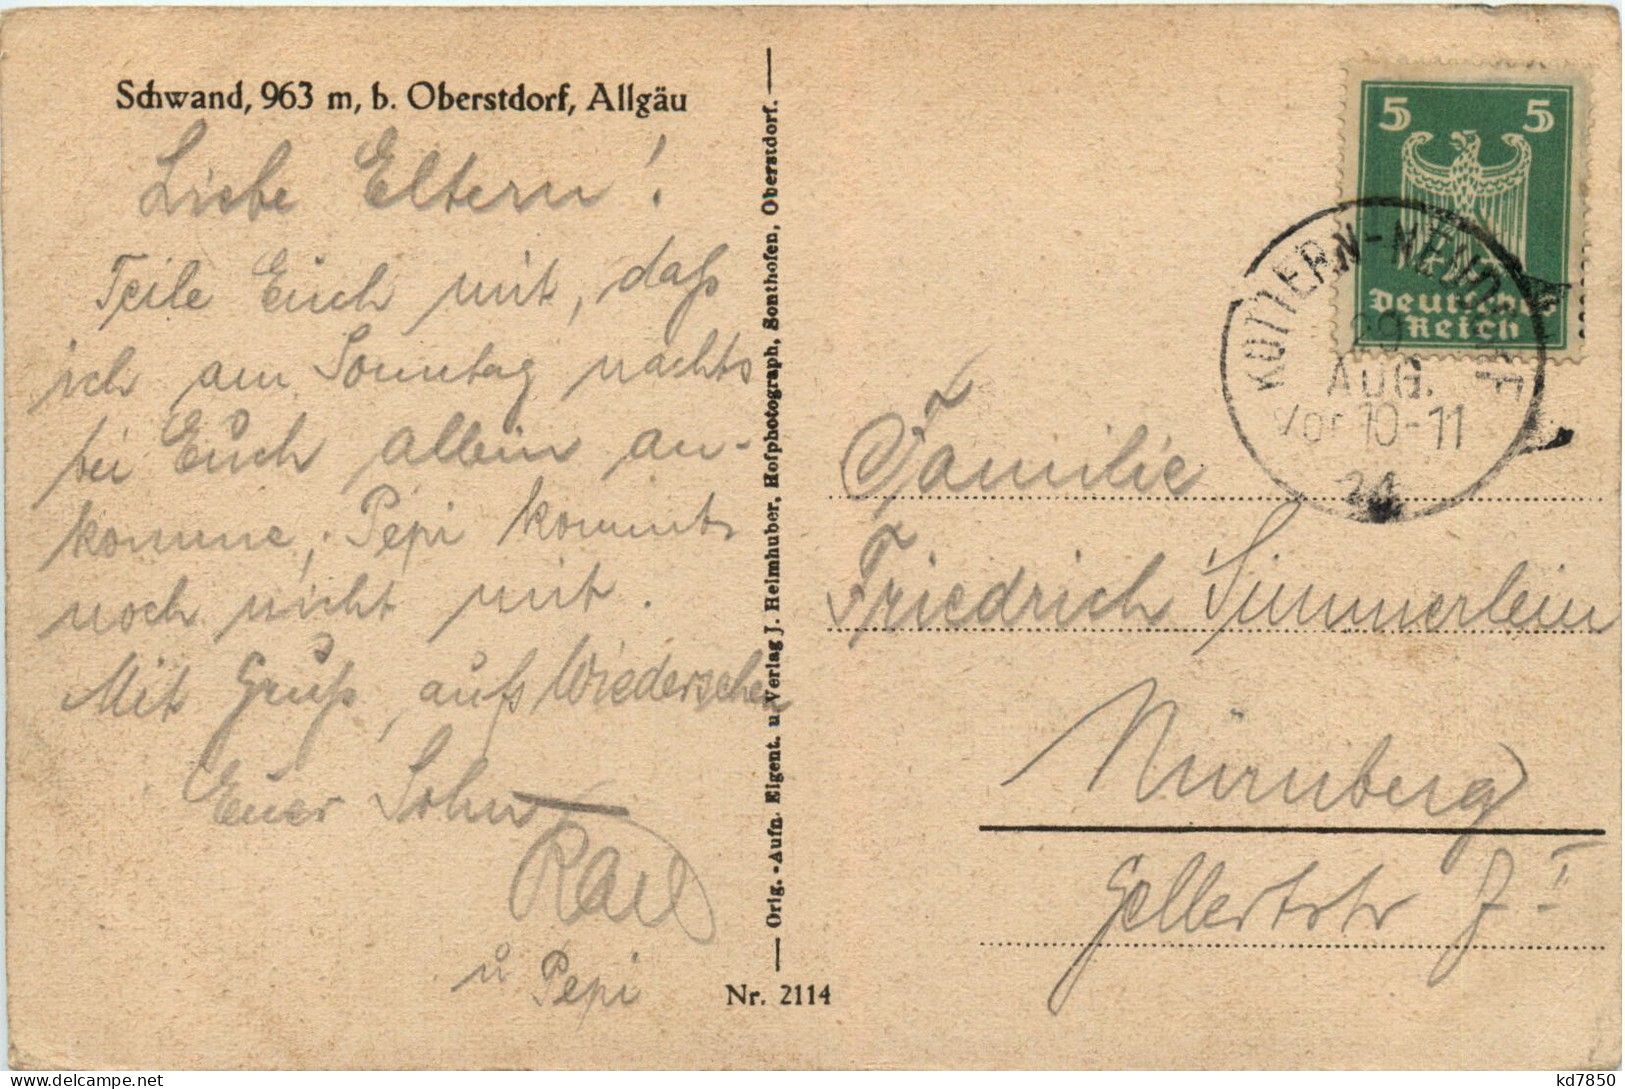 Schwand, 963 m, b. Oberstdorf, Allgäu
Liebe Eltern!
Teile Euch mit, daß
ich am Sonntag nachts
bei Euch allein an-
komme, Pepi kommt
noch nicht mit.
Mit Gruß, aufs Wiedersehen
Euer Sohn
Karl
u Pepi
Orig.-Aufn. Eigent. u. Verlag J. Heimhuber, Hofphotograph, Sonthofen, Oberstdorf.
Nr. 2114
5 5
Deutsches
Reich
KOTTERN-NEUDORF
29
AUG.
Vor 10-11
24
Familie
Friedrich Simmerlein
Nürnberg
Gellertstr 7 I
kd7850